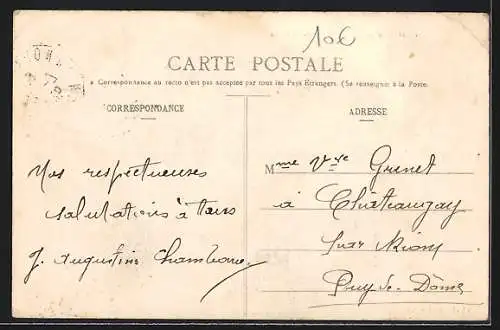 10€
CARTE POSTALE
La Correspondance au recto n'est pas acceptée par tous les Pays Étrangers. (Se renseigner à la Poste.
CORRESPONDANCE
ADRESSE
Mes respectueuses
salutations à tous
J. Augustin Chambore
Mme Vve Grenet
à Châteaugay
par Riom
Puy-de-Dôme